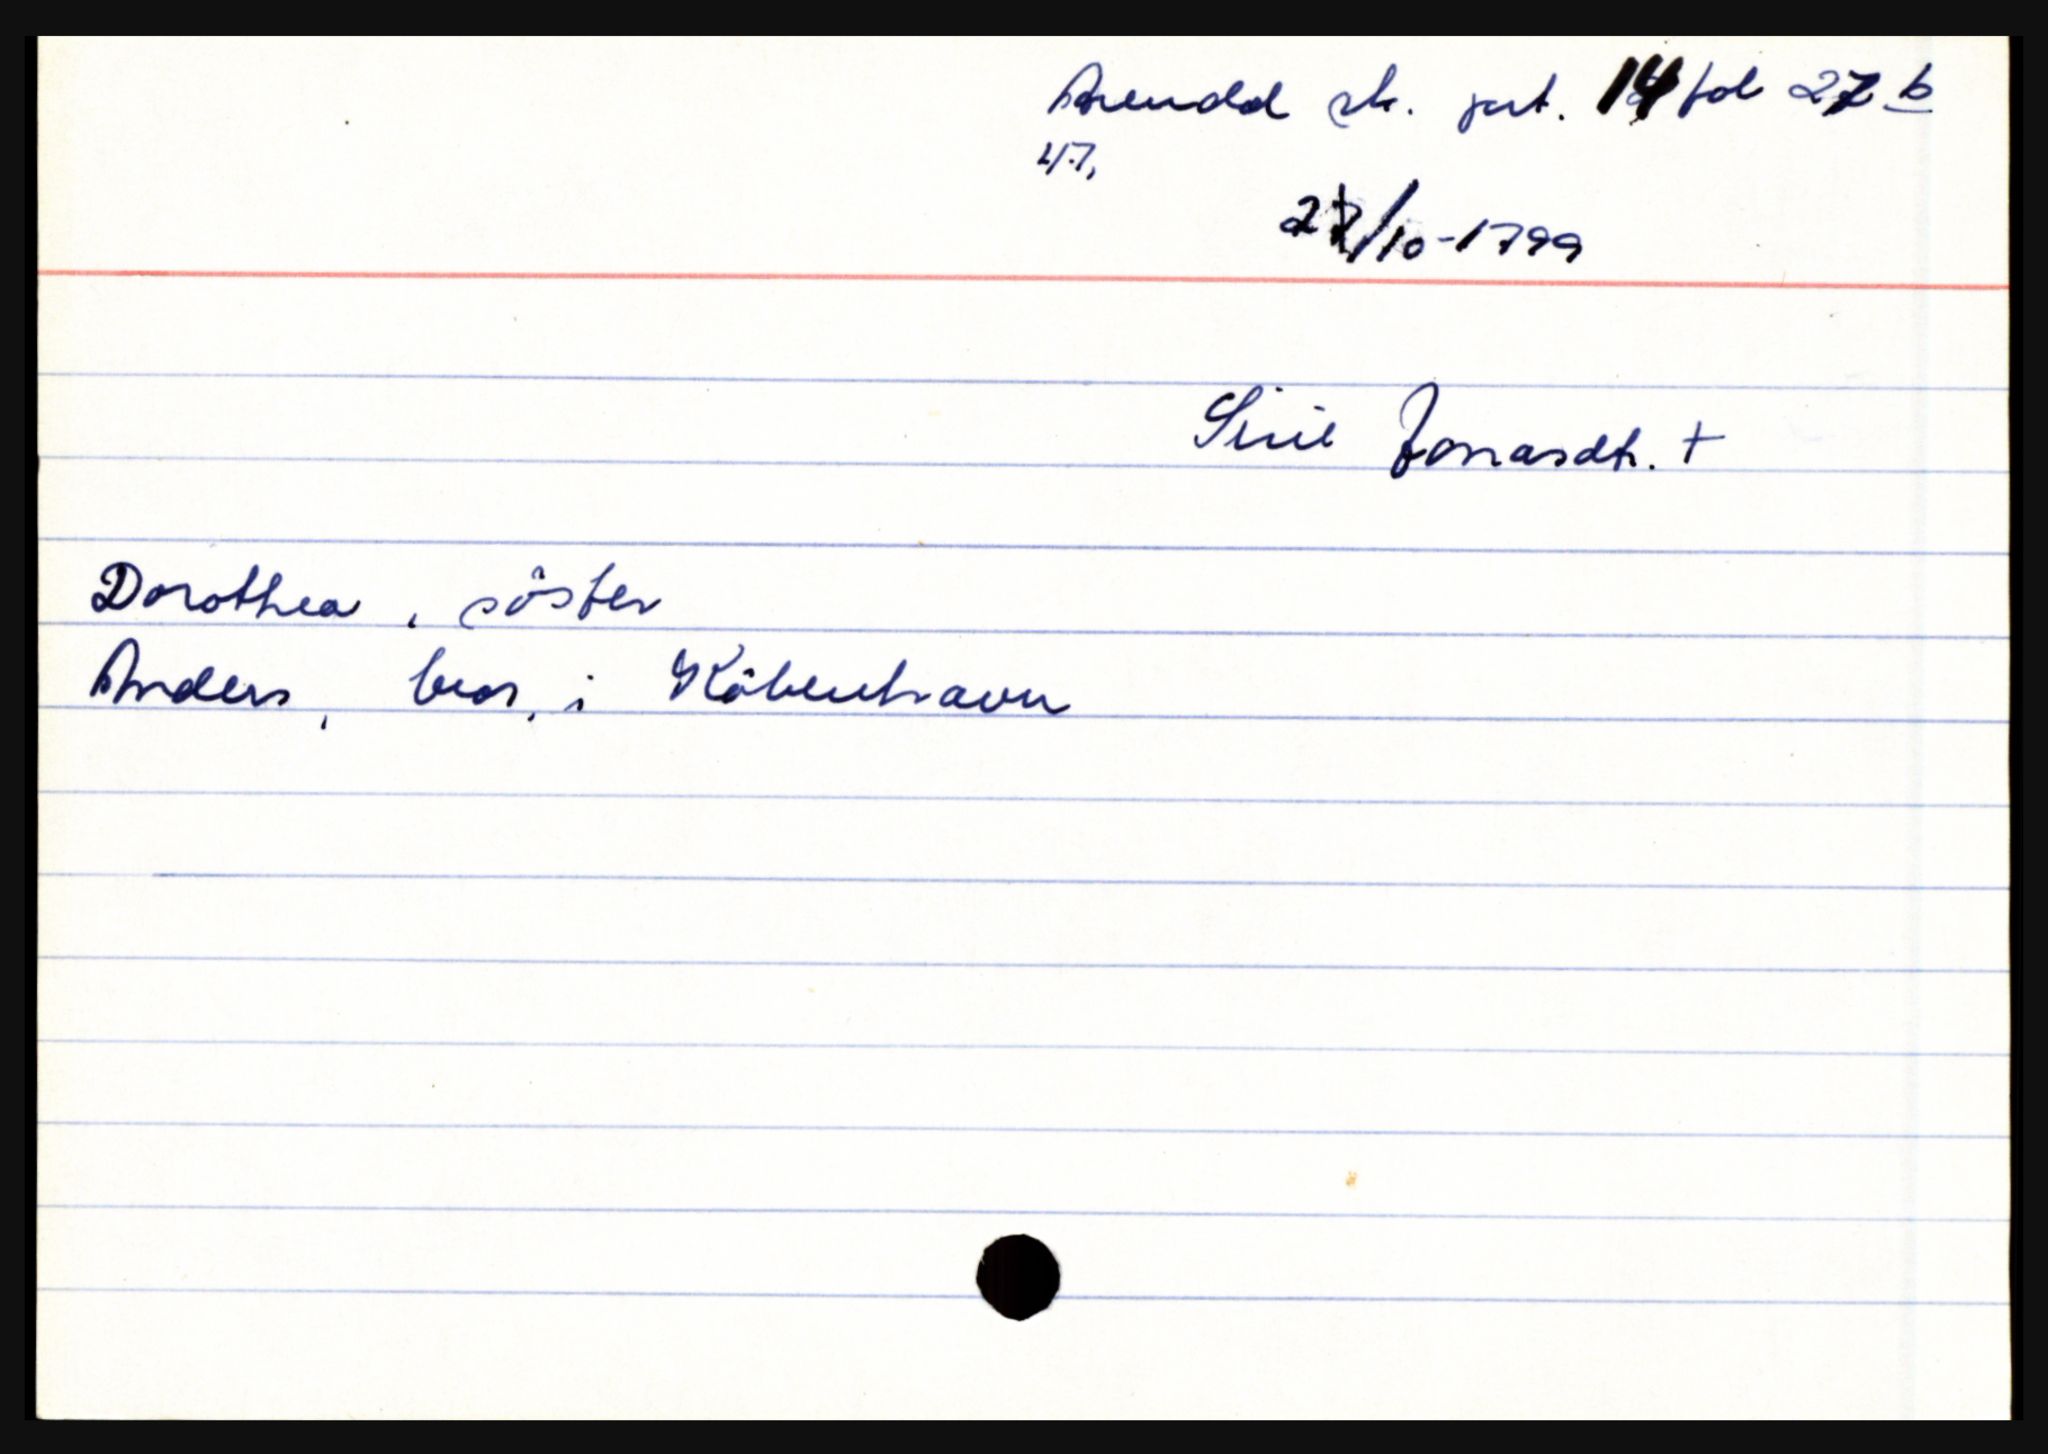 Arendal sk. prt. 14 fol 27 b
47,
27/10-1799
Siril Jonasdtr. +
Dorothea, söster
Anders, bror, i Köbenhavn